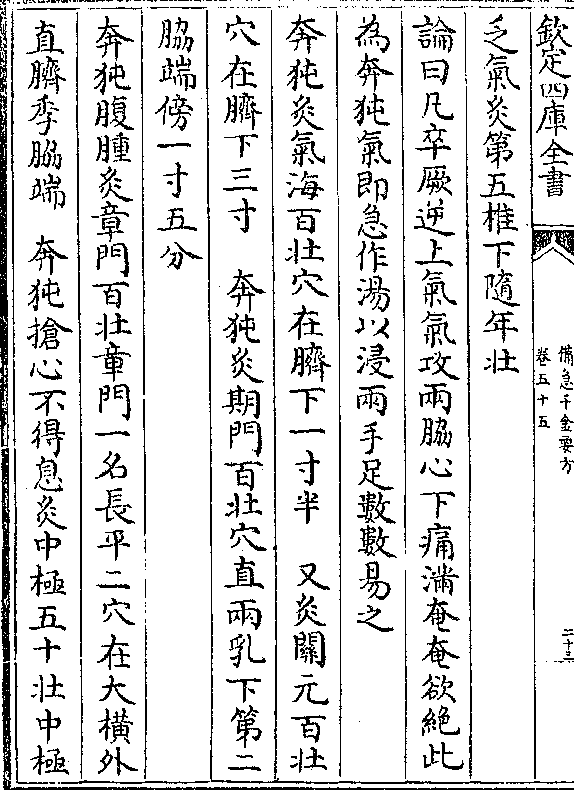 欽定四庫全書
備急千金要方
卷五十五
二十三
乏氣灸第五椎下隨年壯
論曰凡卒厥逆上氣氣攻兩脇心下痛滿奄奄欲絶此
為奔㹠氣即急作湯以浸兩手足數數易之
奔㹠灸氣海百壯穴在臍下一寸半　又灸關元百壯
穴在臍下三寸　奔㹠灸期門百壯穴直兩乳下第二
脇端傍一寸五分
奔㹠腹腫灸章門百壯章門一名長平二穴在大横外
直臍季脇端　奔㹠搶心不得息灸中極五十壯中極